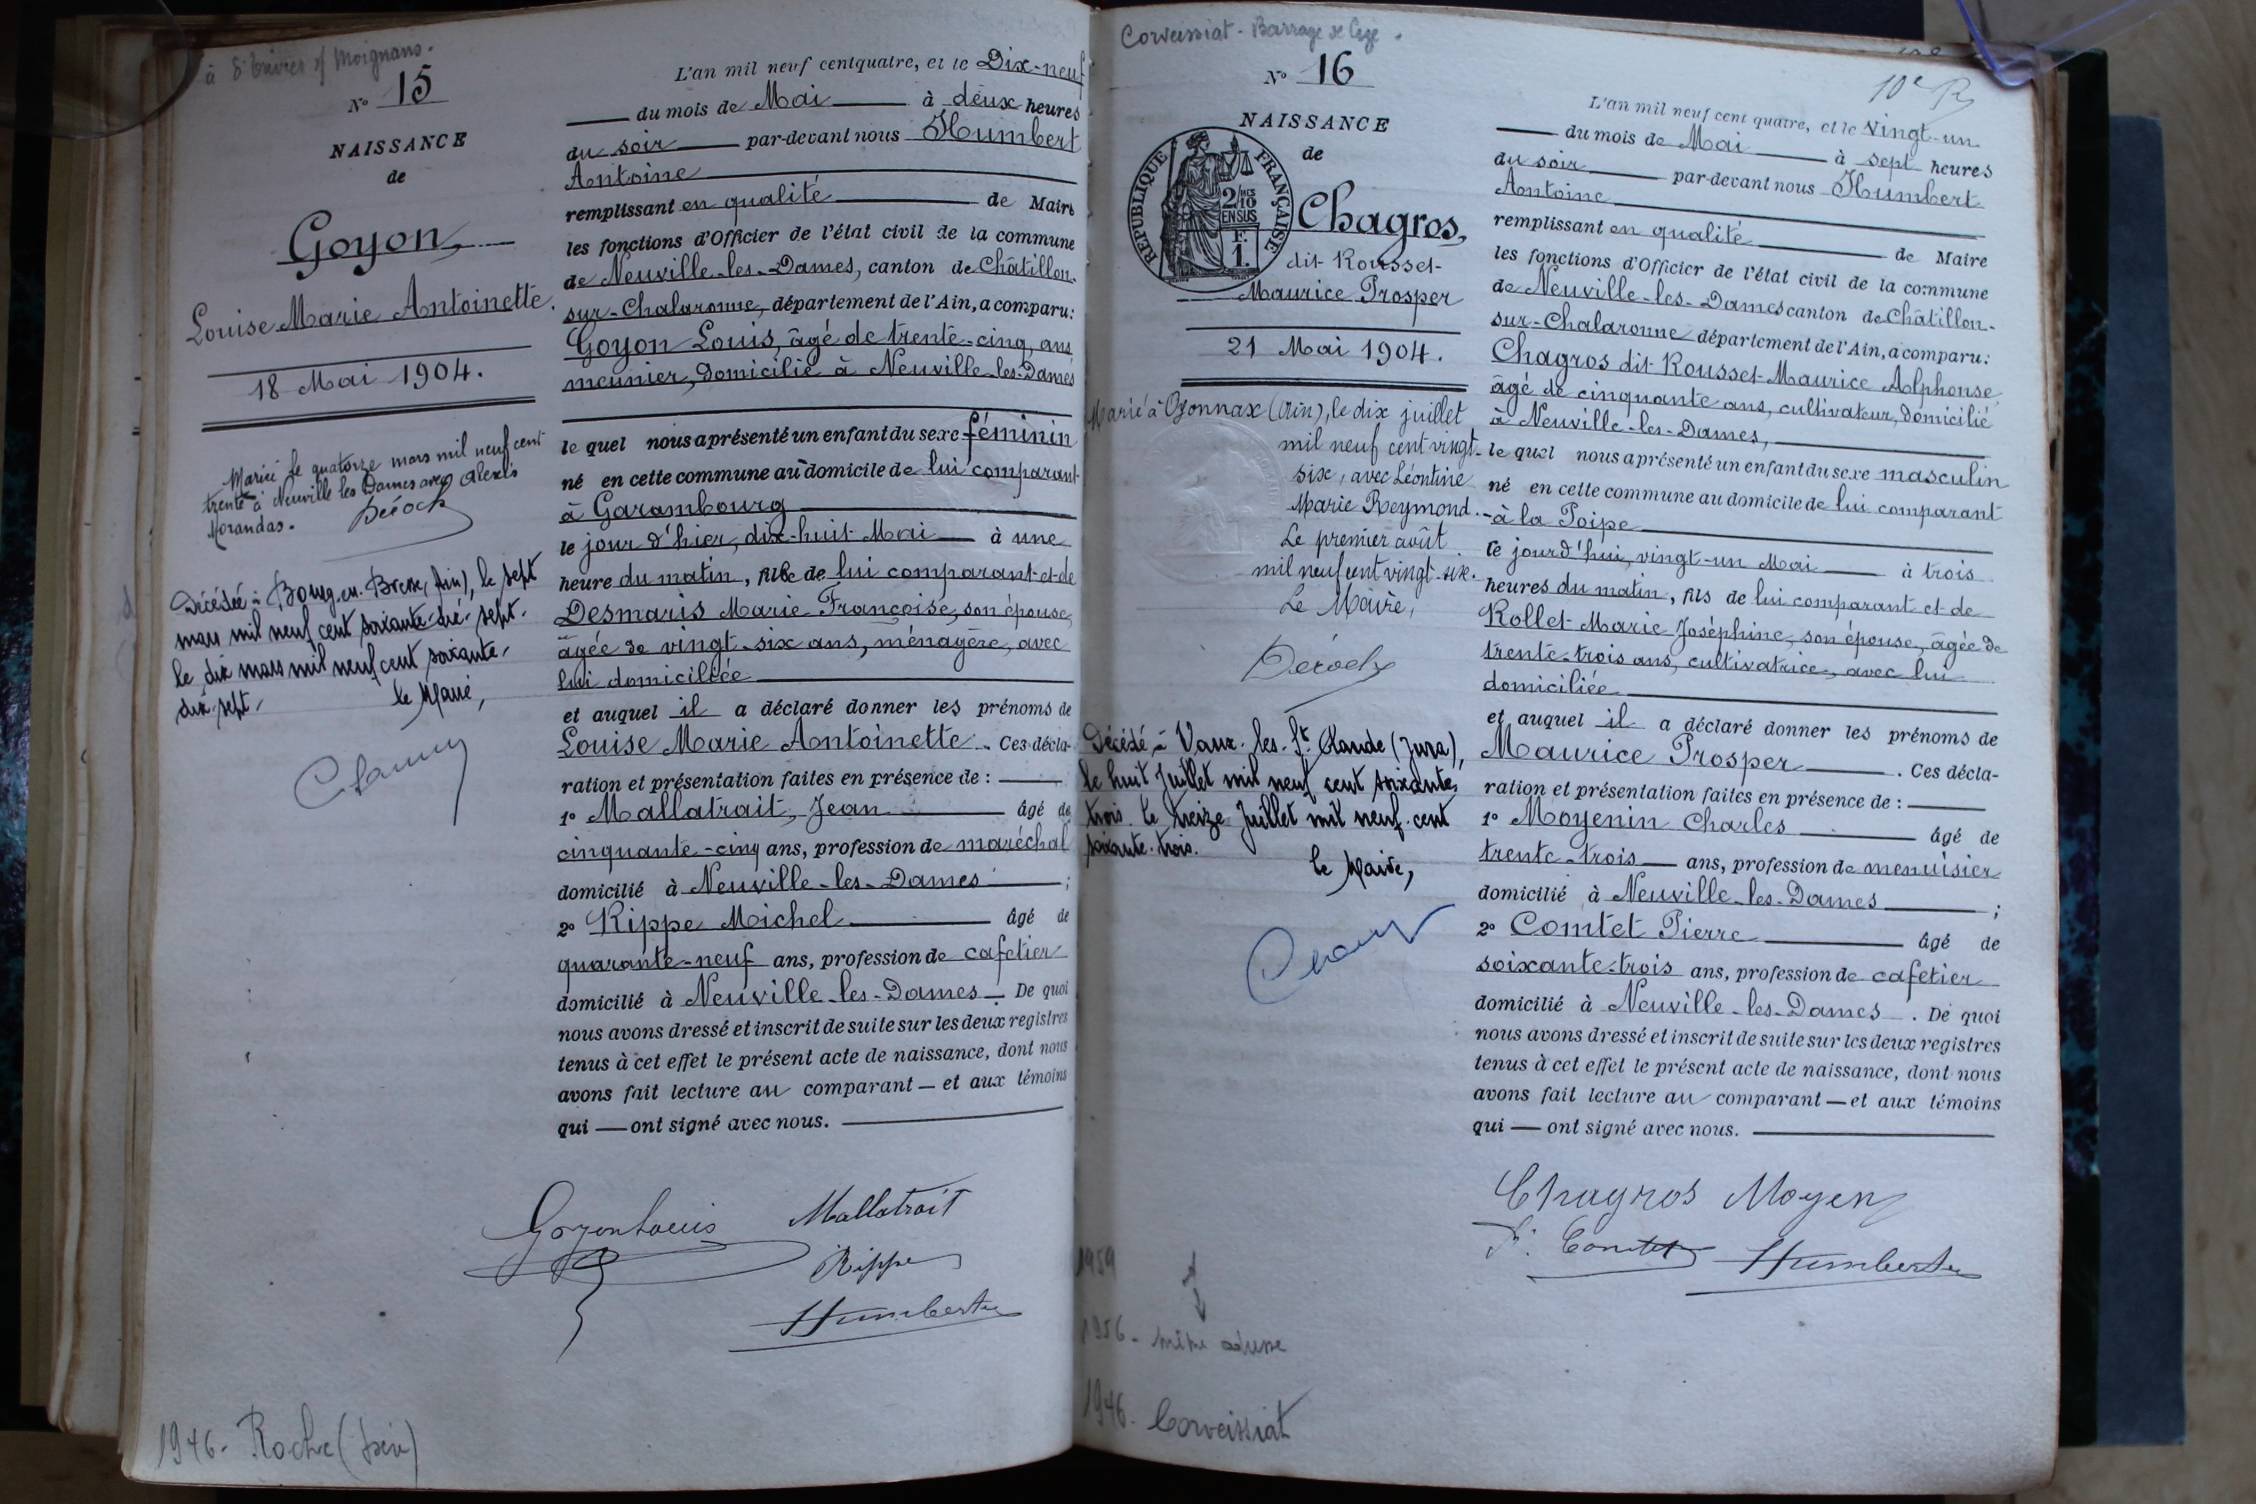 à St Trivier s/ Moignans.
N° 15
NAISSANCE
de
Goyon
Louise Marie Antoinette.
18 Mai 1904.
Mariée le quatorze mars mil neuf cent
trente à Neuville les Dames avec Alexis
Morandas.
Déroch
Décédée à Bourg-en-Bresse, (Ain), le sept
mars mil neuf cent soixante-dix-sept.
le dix mars mil neuf cent soixante-
dix-sept,
le Maire,
1946 - Roche (Isère)
L'an mil neuf cent quatre, et le Dix-neuf
du mois de Mai à deux heures
du soir par-devant nous Humbert
Antoine
remplissant en qualité de Maire
les fonctions d'Officier de l'état civil de la commune
de Neuville-les-Dames, canton de Châtillon-
sur-Chalaronne, département de l'Ain, a comparu:
Goyon Louis, âgé de trente-cinq, ans
meunier, domicilié à Neuville-les-Dames
le quel nous a présenté un enfant du sexe féminin
né en cette commune au domicile de lui comparant
à Garambourg
le jour d'hier, dix-huit Mai à une
heure du matin, fille de lui comparant et de
Desmaris Marie Françoise, son épouse,
âgée de vingt-six ans, ménagère, avec
lui domiciliée
et auquel il a déclaré donner les prénoms de
Louise Marie Antoinette. Ces décla-
ration et présentation faites en présence de :
1° Mallatrait, Jean âgé de
cinquante-cinq ans, profession de maréchal
domicilié à Neuville-les-Dames ;
2° Rippe Michel âgé de
quarante-neuf ans, profession de cafetier
domicilié à Neuville-les-Dames. De quoi
nous avons dressé et inscrit de suite sur les deux registres
tenus à cet effet le présent acte de naissance, dont nous
avons fait lecture au comparant — et aux témoins
qui — ont signé avec nous.
Goyon Louis Mallatrait
Rippe
Humbert
Corveissiat - Barrage de Cize.
N° 16
NAISSANCE
de
RÉPUBLIQUE FRANÇAISE
2/10 EN SUS
F. 1.
Chagros,
dit Rousset
Maurice Prosper
21 Mai 1904.
Marié à Oyonnax (Ain), le dix juillet
mil neuf cent vingt-
six, avec Léontine
Marie Reymond.
Le premier août
mil neuf cent vingt-six.
Le Maire,
Déroch
Décédé à Vaux-les-St Claude (Jura),
le huit Juillet mil neuf cent soixante
trois. le treize Juillet mil neuf cent
soixante-trois.
le Maire,
1959
1956 - même adresse
1946 - Corveissiat
10e
L'an mil neuf cent quatre, et le Vingt-un
du mois de Mai à sept heures
du soir par-devant nous Humbert
Antoine
remplissant en qualité de Maire
les fonctions d'Officier de l'état civil de la commune
de Neuville-les-Dames canton de Châtillon-
sur-Chalaronne département de l'Ain, a comparu:
Chagros dit Rousset Maurice Alphonse,
âgé de cinquante ans, cultivateur, domicilié
à Neuville-les-Dames,
le quel nous a présenté un enfant du sexe masculin
né en cette commune au domicile de lui comparant
à la Poipe
le jourd'hui, vingt-un Mai à trois
heures du matin, fils de lui comparant et de
Rollet Marie Joséphine, son épouse, âgée de
trente-trois ans, cultivatrice, avec lui
domiciliée
et auquel il a déclaré donner les prénoms de
Maurice Prosper. Ces décla-
ration et présentation faites en présence de :
1° Moyenin Charles âgé de
trente-trois ans, profession de menuisier
domicilié à Neuville-les-Dames ;
2° Comtet Pierre âgé de
soixante-trois ans, profession de cafetier
domicilié à Neuville-les-Dames. De quoi
nous avons dressé et inscrit de suite sur les deux registres
tenus à cet effet le présent acte de naissance, dont nous
avons fait lecture au comparant — et aux témoins
qui — ont signé avec nous.
Chagros Moyen
P. Comtet Humbert